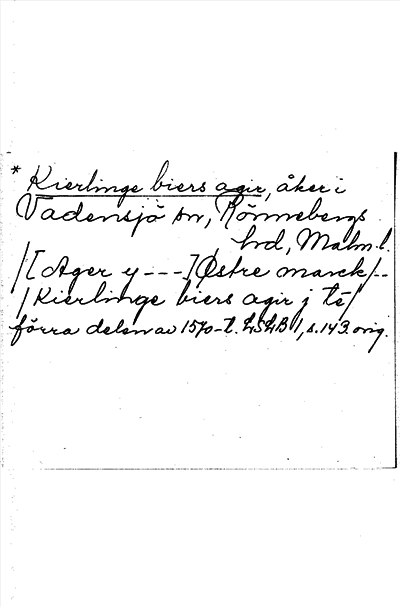 * Kierlinge biers agir, åker i
Vadensjö sn, Rönnebergs
hd, Malm. l.
/[Ager y ---] Østre marck/--
/Kierlinge biers agir j te/
förra delen av 1570-t. LSLB 1, s. 143. orig.